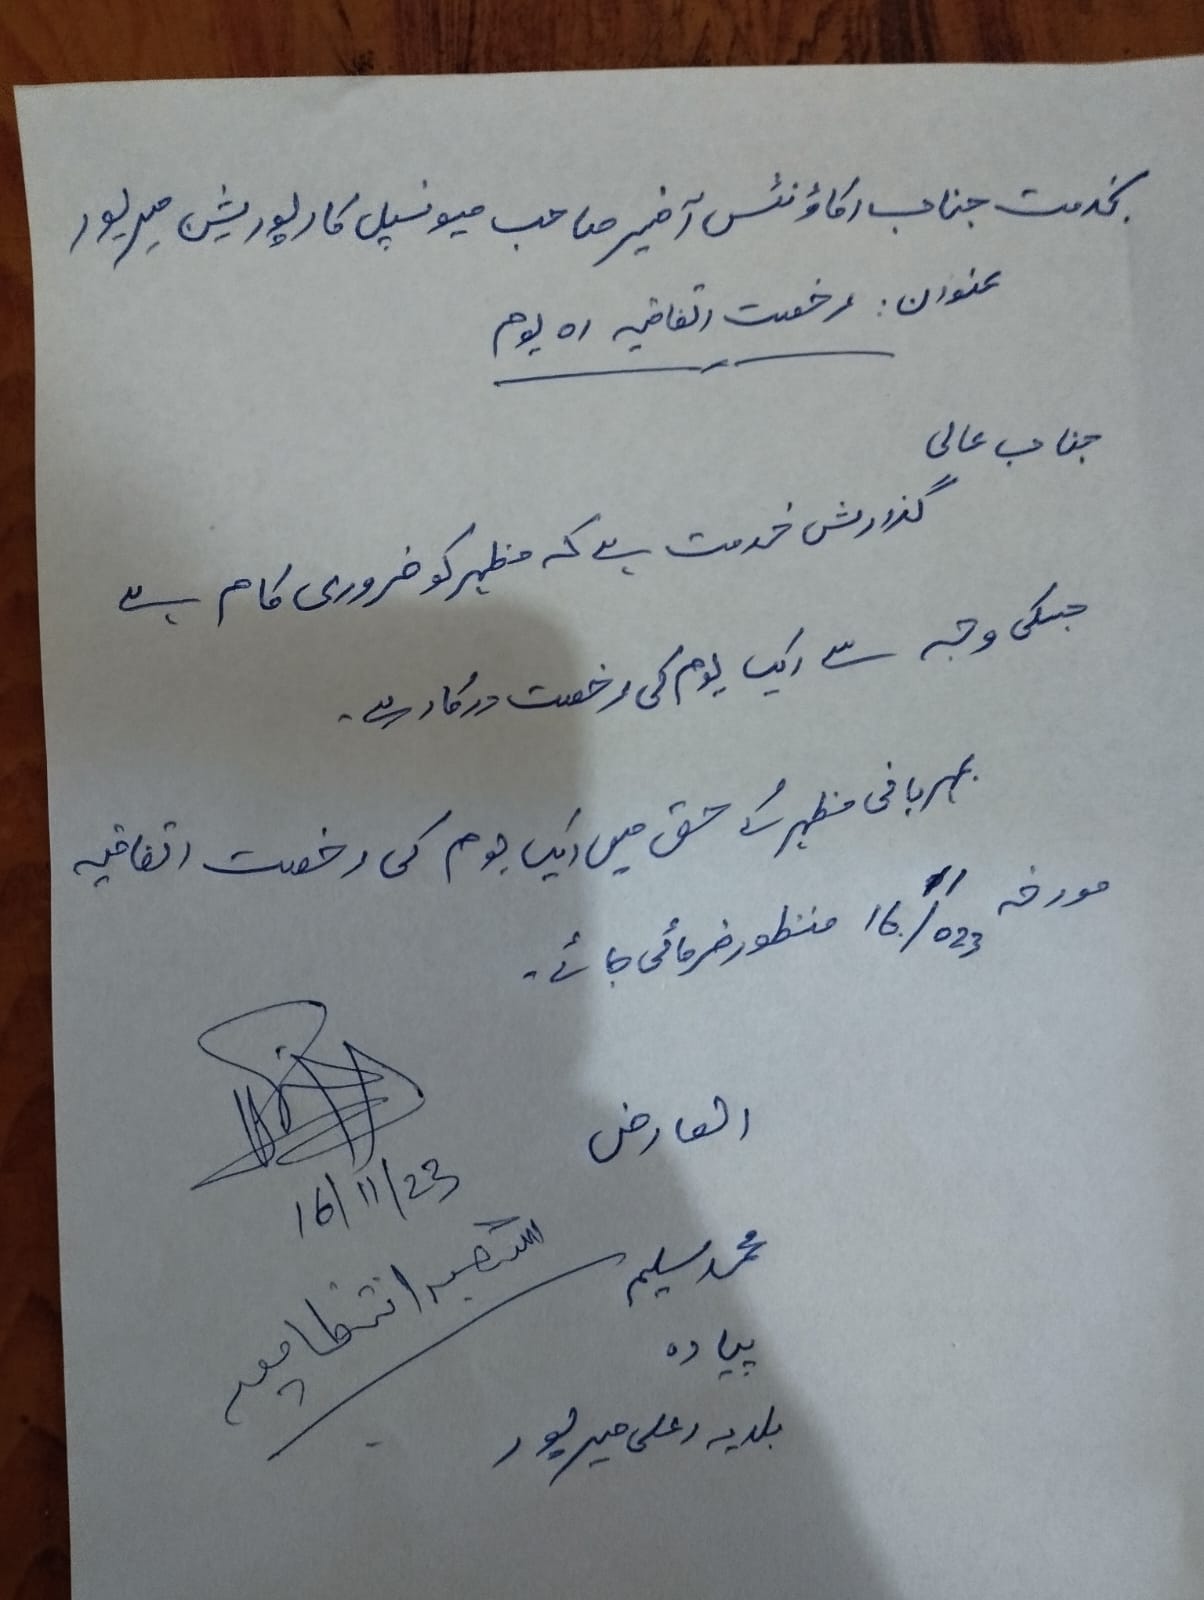 بخدمت جناب اکاؤنٹس آفیسر صاحب میونسپل کارپوریشن میرپور
عنوان: رخصت اتفاقیہ 01 یوم
جناب عالی
گذارش خدمت ہے کہ مظہر کو ضروری کام ہے
جسکی وجہ سے ایک یوم کی رخصت درکار ہے۔
بمہربانی مظہر کے حق میں ایک یوم کی رخصت اتفاقیہ
مورخہ 16/11/023 منظور فرمائی جائے۔
العارض
16/11/23
شعبہ انتظامیہ
محمد سلیم
پیادہ
بلدیہ اعلی میرپور